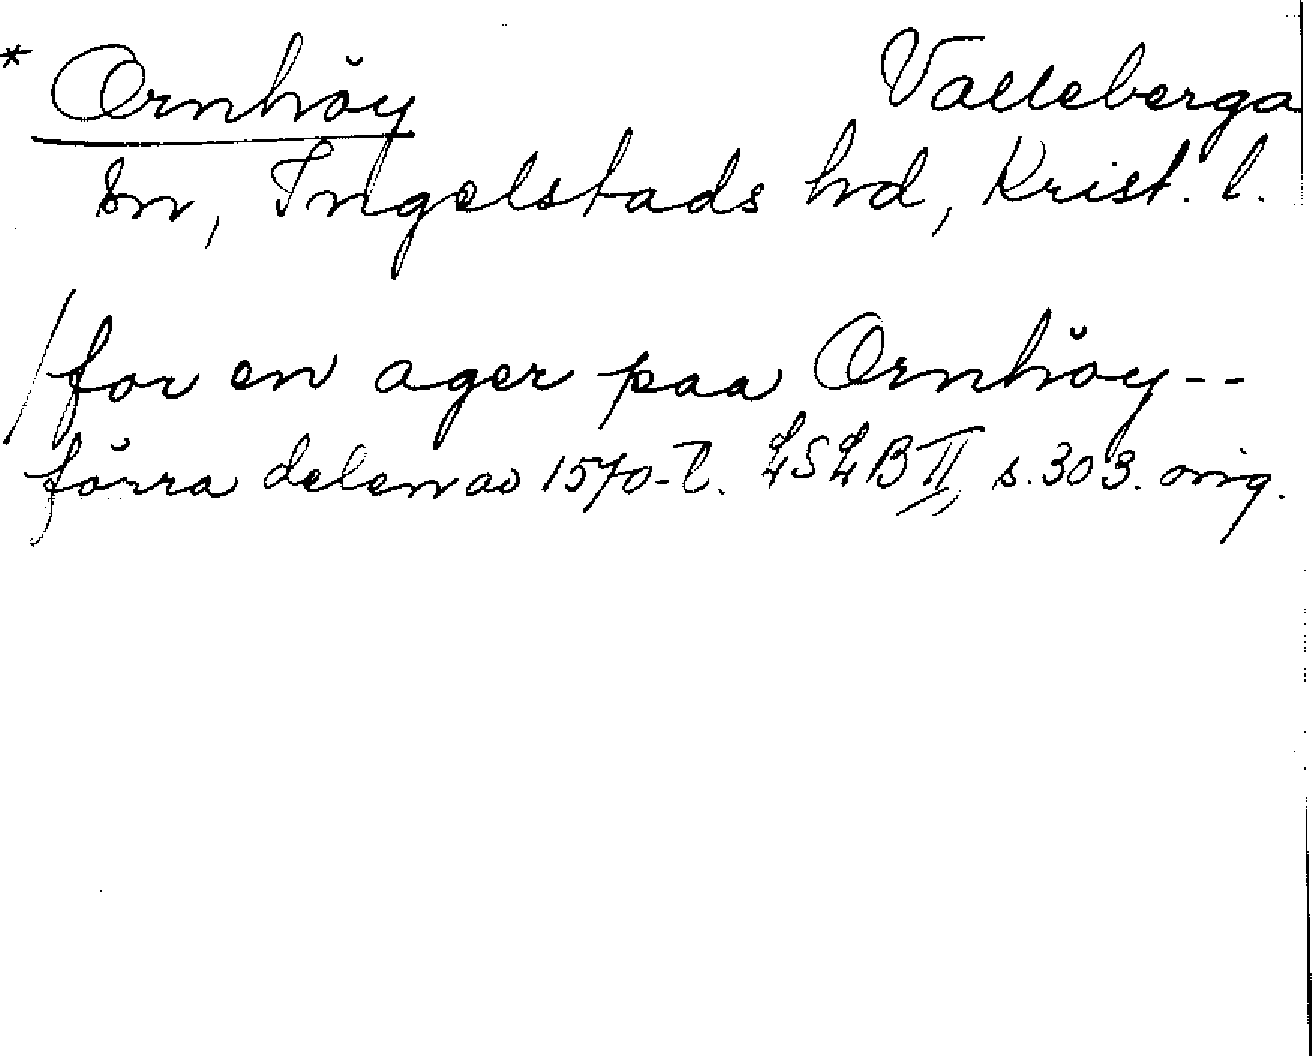 * Ornhöy Valleberga
sn, Ingelstads hd, Krist. l.
/for en ager paa Ornhöy--
förra delen av 1570-t. LSLB II, s. 303. orig.